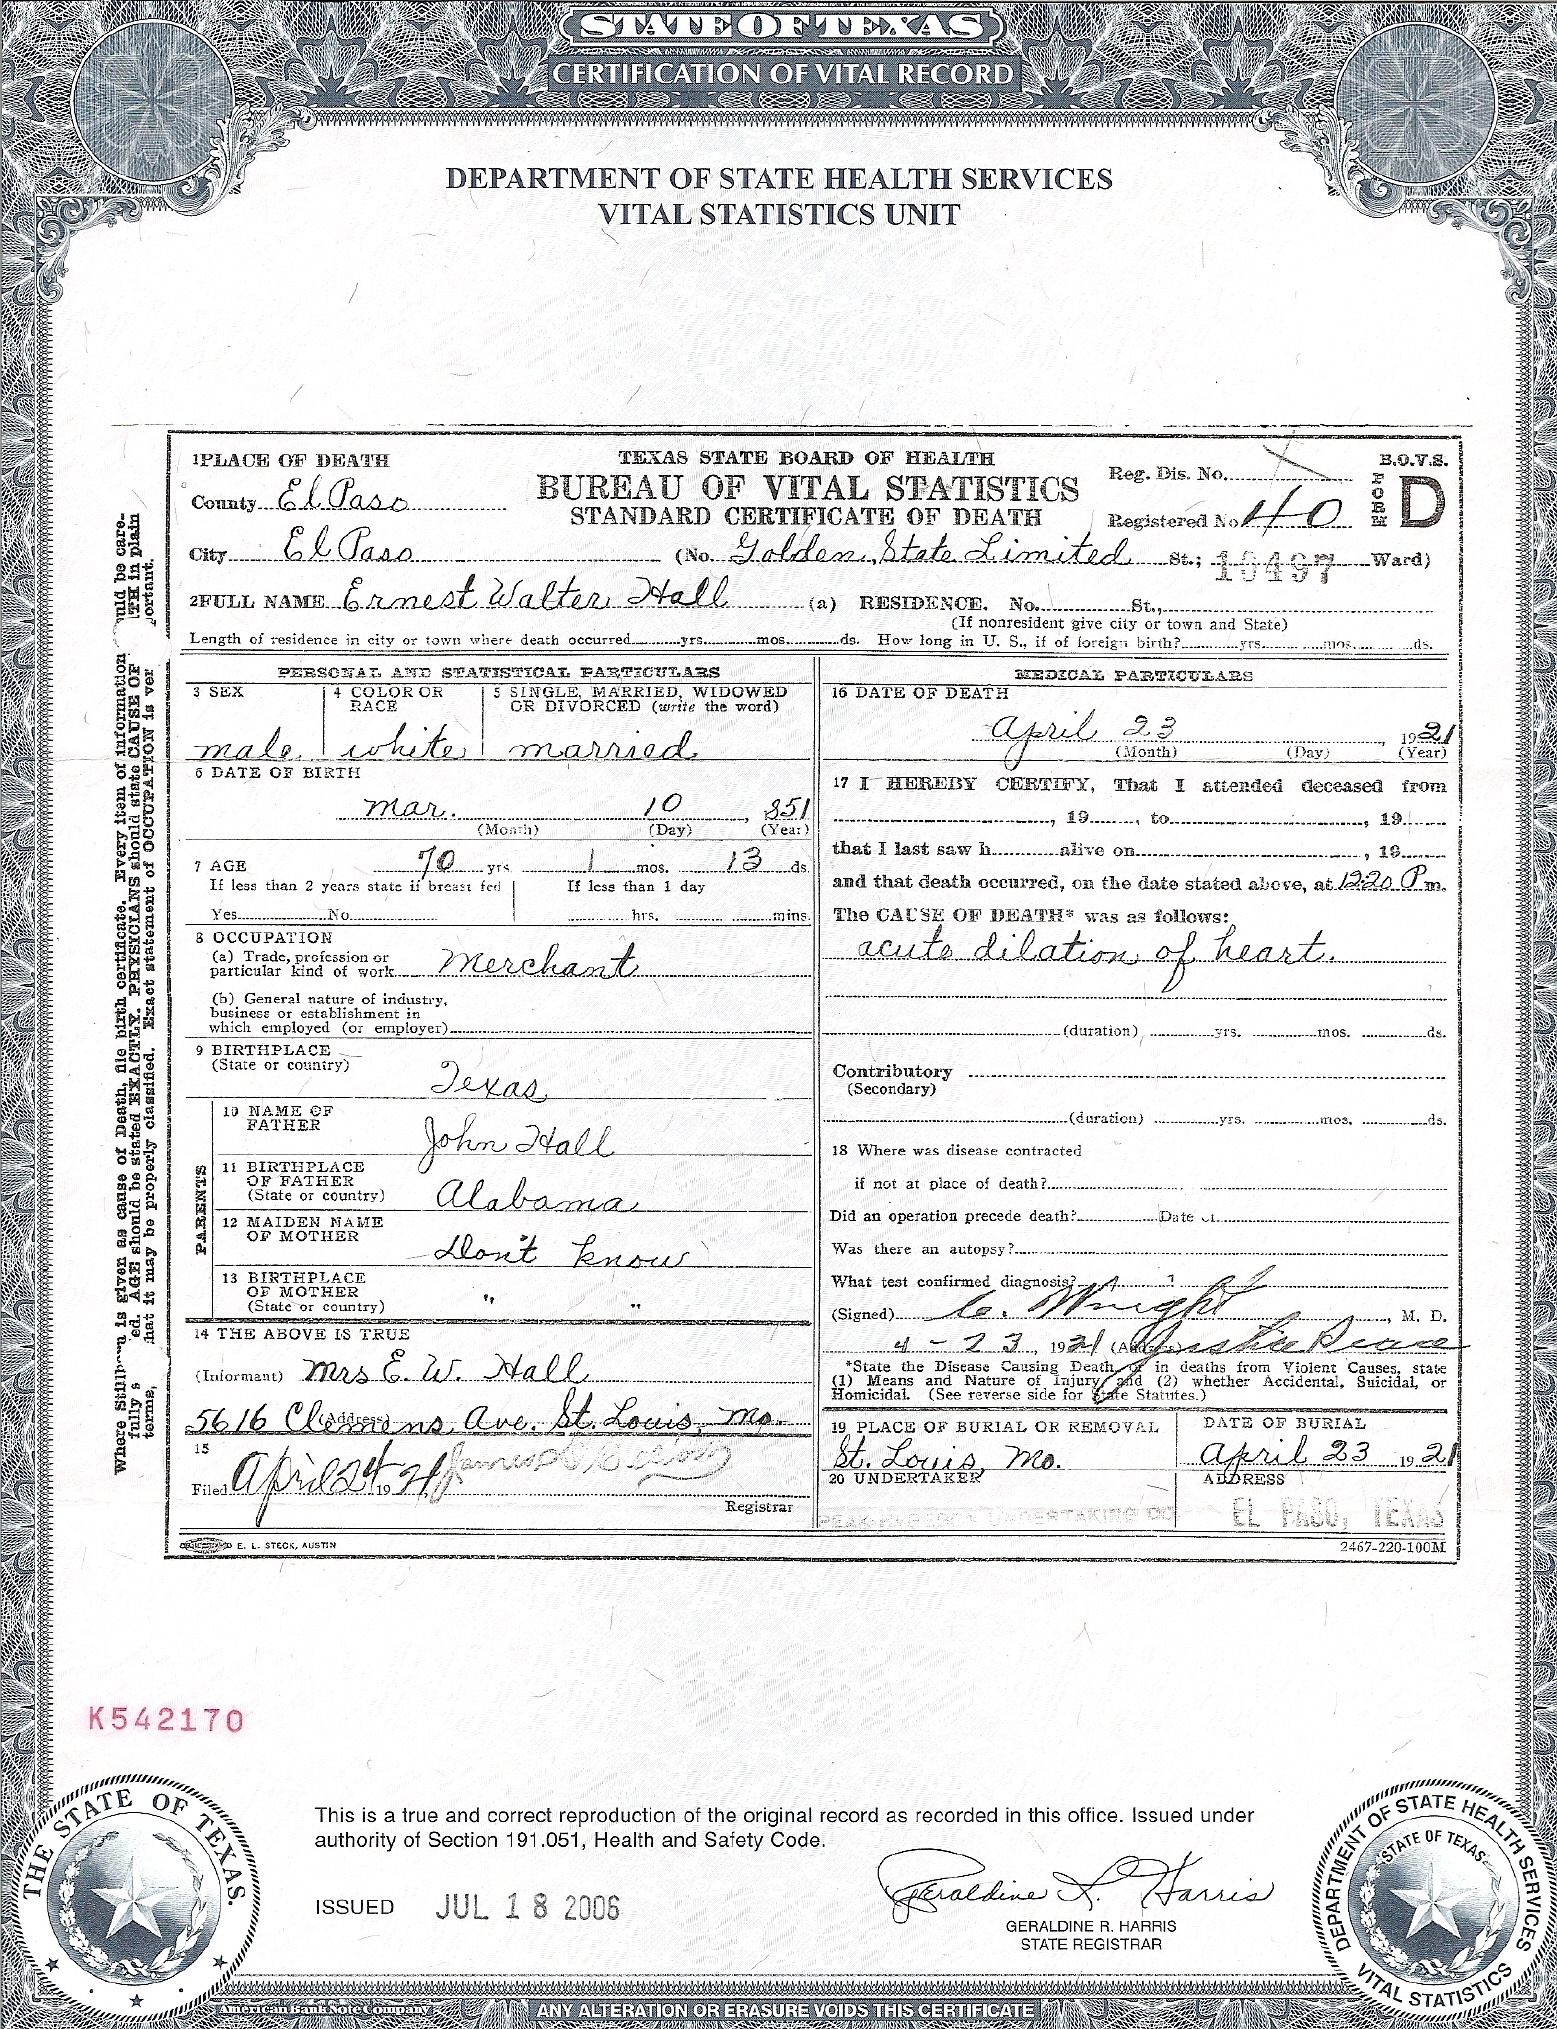 STATE OF TEXAS
CERTIFICATION OF VITAL RECORD
DEPARTMENT OF STATE HEALTH SERVICES
VITAL STATISTICS UNIT
1 PLACE OF DEATH
TEXAS STATE BOARD OF HEALTH
BUREAU OF VITAL STATISTICS
STANDARD CERTIFICATE OF DEATH
Reg. Dis. No. X
B.O.V.S.
FORM D
County El Paso
Registered No 40
City El Paso (No. Golden State Limited St.; 10497 Ward)
2 FULL NAME Ernest Walter Hall (a) RESIDENCE. No. St.,
(If nonresident give city or town and State)
Length of residence in city or town where death occurred yrs. mos. ds. How long in U. S., if of foreign birth? yrs. mos. ds.
PERSONAL AND STATISTICAL PARTICULARS
3 SEX
male
4 COLOR OR RACE
white
5 SINGLE, MARRIED, WIDOWED
OR DIVORCED (write the word)
married
6 DATE OF BIRTH
Mar. 10, 851
(Month) (Day) (Year)
7 AGE 70 yrs 1 mos. 13 ds
If less than 2 years state if breast fed
Yes No
If less than 1 day
hrs. mins.
8 OCCUPATION
(a) Trade, profession or
particular kind of work Merchant
(b) General nature of industry,
business or establishment in
which employed (or employer)
9 BIRTHPLACE
(State or country)
Texas
PARENTS
10 NAME OF
FATHER
John Hall
11 BIRTHPLACE
OF FATHER
(State or country)
Alabama
12 MAIDEN NAME
OF MOTHER
Don't know
13 BIRTHPLACE
OF MOTHER
(State or country)
" "
14 THE ABOVE IS TRUE
(Informant) Mrs E. W. Hall
(Address) 5616 Clemens Ave. St. Louis, Mo.
15
Filed April 24 1921 James
Registrar
MEDICAL PARTICULARS
16 DATE OF DEATH
April 23 1921
(Month) (Day) (Year)
17 I HEREBY CERTIFY, That I attended deceased from
, 19 , to , 19
that I last saw h alive on , 19
and that death occurred, on the date stated above, at 1220 P m.
The CAUSE OF DEATH* was as follows:
acute dilation of heart.
(duration) yrs. mos. ds.
Contributory
(Secondary)
(duration) yrs. mos. ds.
18 Where was disease contracted
if not at place of death?
Did an operation precede death? Date of
Was there an autopsy?
What test confirmed diagnosis?
(Signed) Wright, M. D.
4-23, 1921 (Address) Justice Peace
*State the Disease Causing Death, or in deaths from Violent Causes, state
(1) Means and Nature of Injury, and (2) whether Accidental, Suicidal, or
Homicidal. (See reverse side for State Statutes.)
19 PLACE OF BURIAL OR REMOVAL
St. Louis, Mo.
DATE OF BURIAL
April 23 1921
20 UNDERTAKER
UNDERTAKING CO
ADDRESS
EL PASO, TEXAS
E. L. STECK, AUSTIN
2467-220-100M
Where is given as cause of Death, file birth certificate. Every item of information
fully s ed. AGE should be stated EXACTLY. PHYSICIANS should state CAUSE OF
terms, hat it may be properly classified. Exact statement of OCCUPATION is ver
uld be care-
TH in plain
portant.
K542170
THE STATE OF TEXAS.
This is a true and correct reproduction of the original record as recorded in this office. Issued under
authority of Section 191.051, Health and Safety Code.
ISSUED JUL 18 2006
Geraldine R. Harris
GERALDINE R. HARRIS
STATE REGISTRAR
DEPARTMENT OF STATE HEALTH SERVICES
STATE OF TEXAS
VITAL STATISTICS
American Bank Note Company
ANY ALTERATION OR ERASURE VOIDS THIS CERTIFICATE